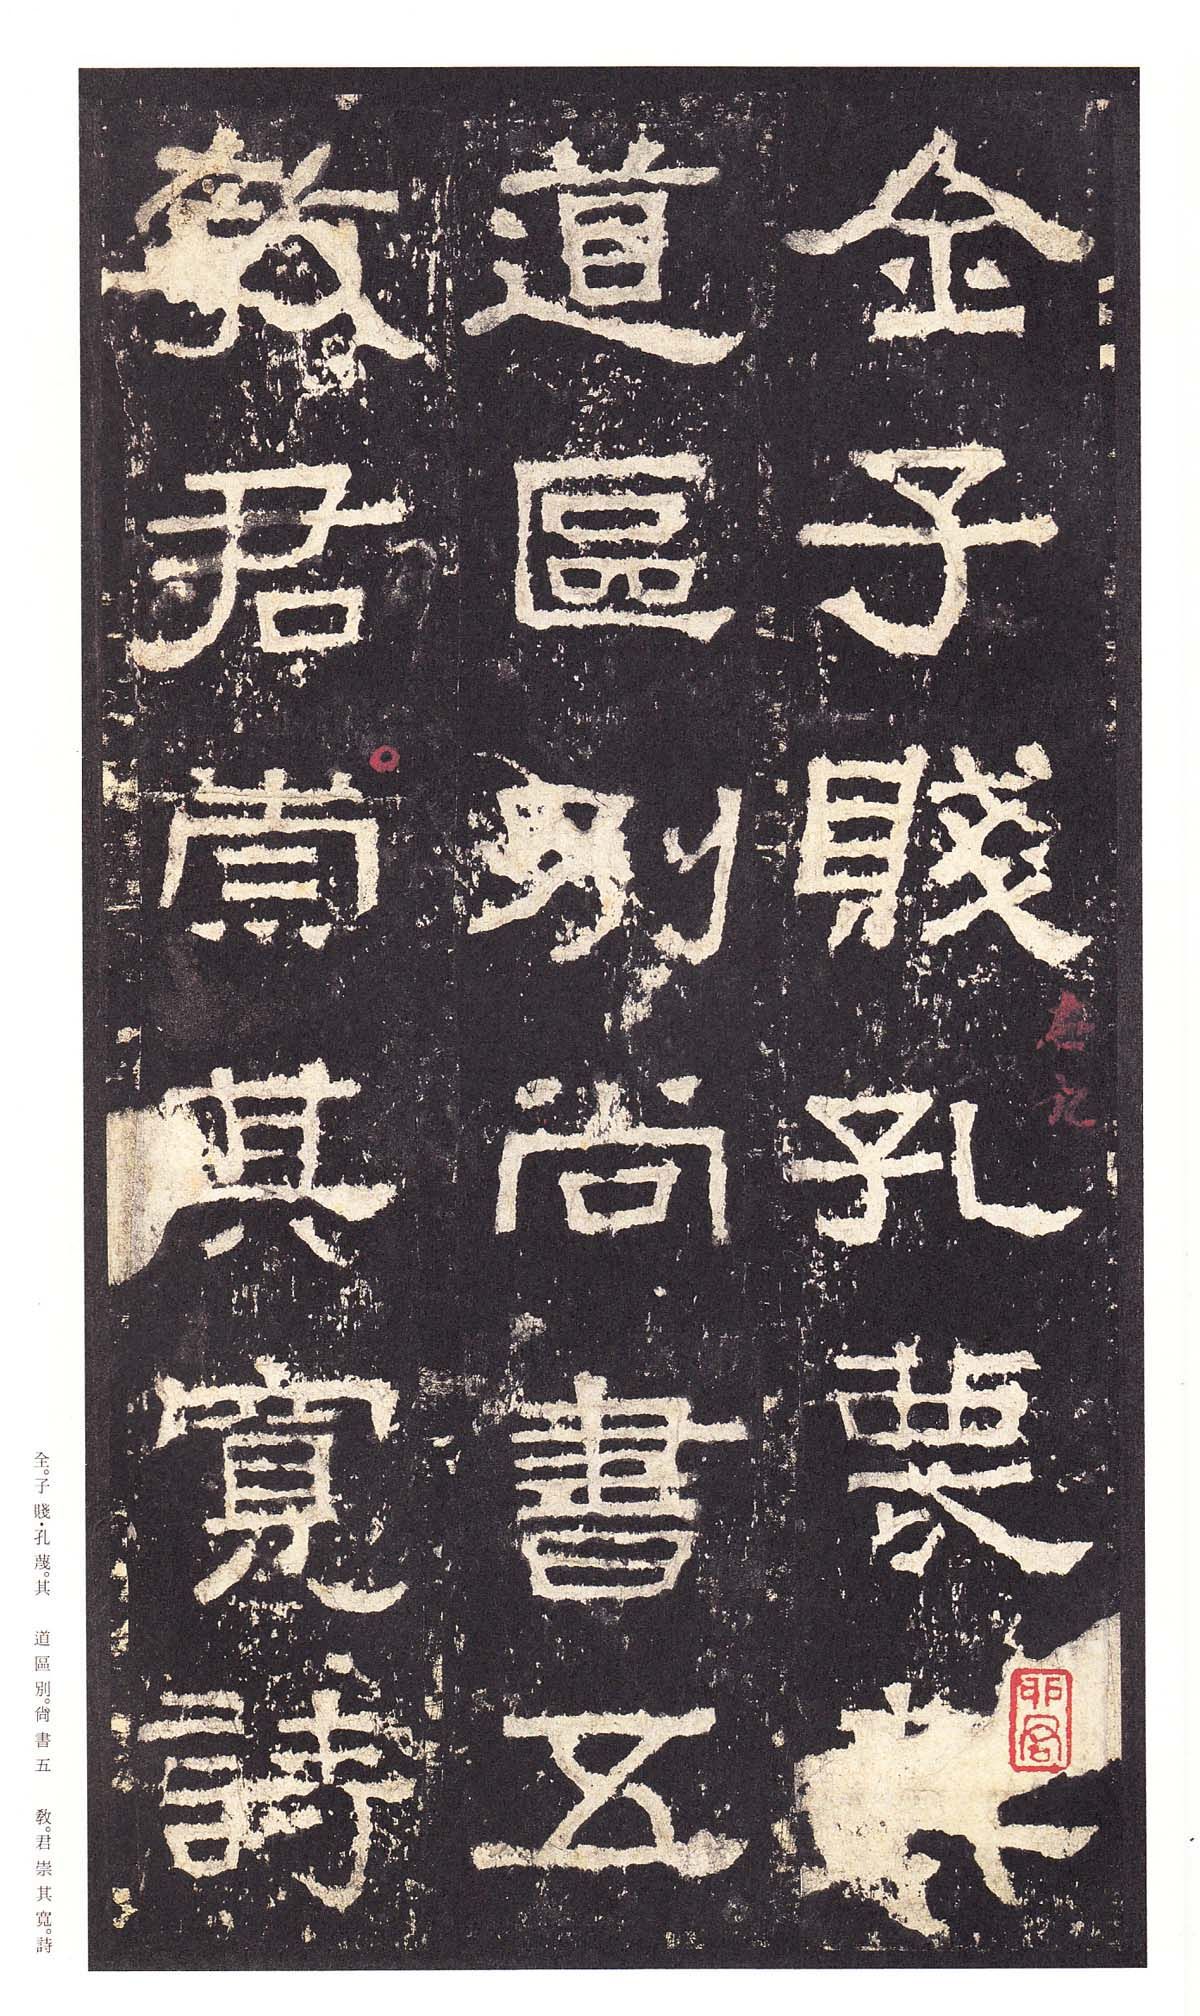 全子賤孔蔑其
道區別尚書五
教君崇其寬詩
全。子賤・孔蔑。其　道區別。尙書五　敎。君崇其寬。詩